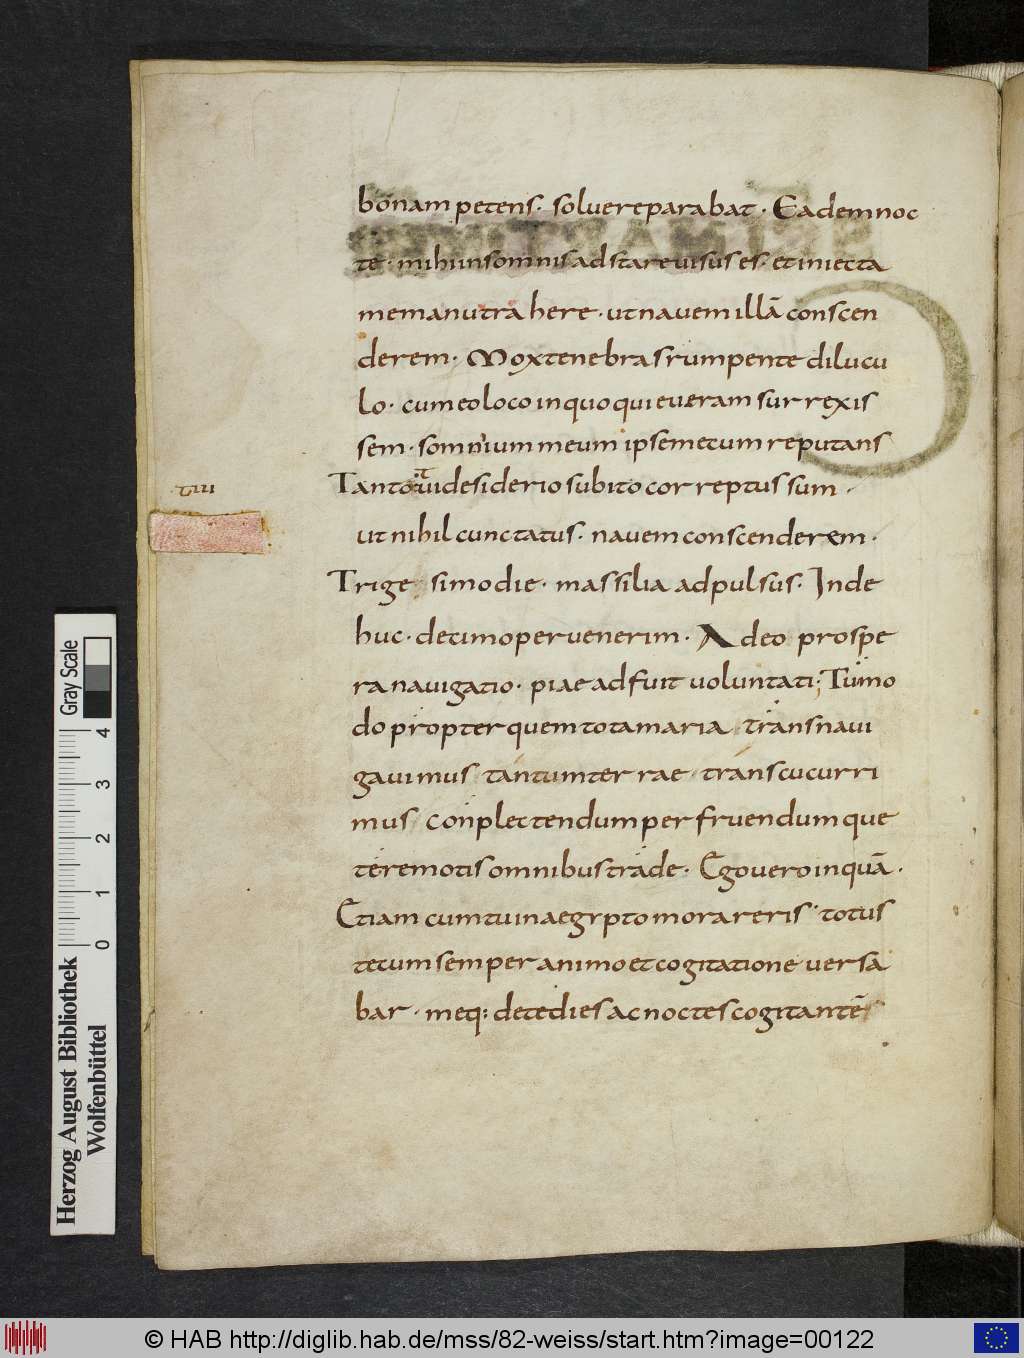 bonam petens· solvere parabat · Eadem noc
te · mihi in somnis adstare visus es · et iniecta
me manu trahere · ut navem illā conscen
derem · Mox tenebras rumpente dilucu
lo · cum eo loco in quo quieveram surrexis
sem · somnium meum ipse mecum reputans
Tanto tui desiderio subito correptus sum ·
ut nihil cunctatus · navem conscenderem ·
Trigesimo die · massilia adpulsus · Inde
huc · decimo pervenerim · Adeo prospe
ra navigatio · piae adfuit voluntati; Tu mo
do propter quem tota maria transnavi
gavimus tantum terrae transcucurri
mus conplectendum perfruendumque
te remotis omnibus trade · Ego vero inquā ·
Etiam cum tu in aegypto morareris · totus
tecum semper animo et cogitatione versa
bar · meq: de te dies ac noctes cogitantē
Gray Scale
4
3
2
1
0
Herzog August Bibliothek
Wolfenbüttel
© HAB http://diglib.hab.de/mss/82-weiss/start.htm?image=00122